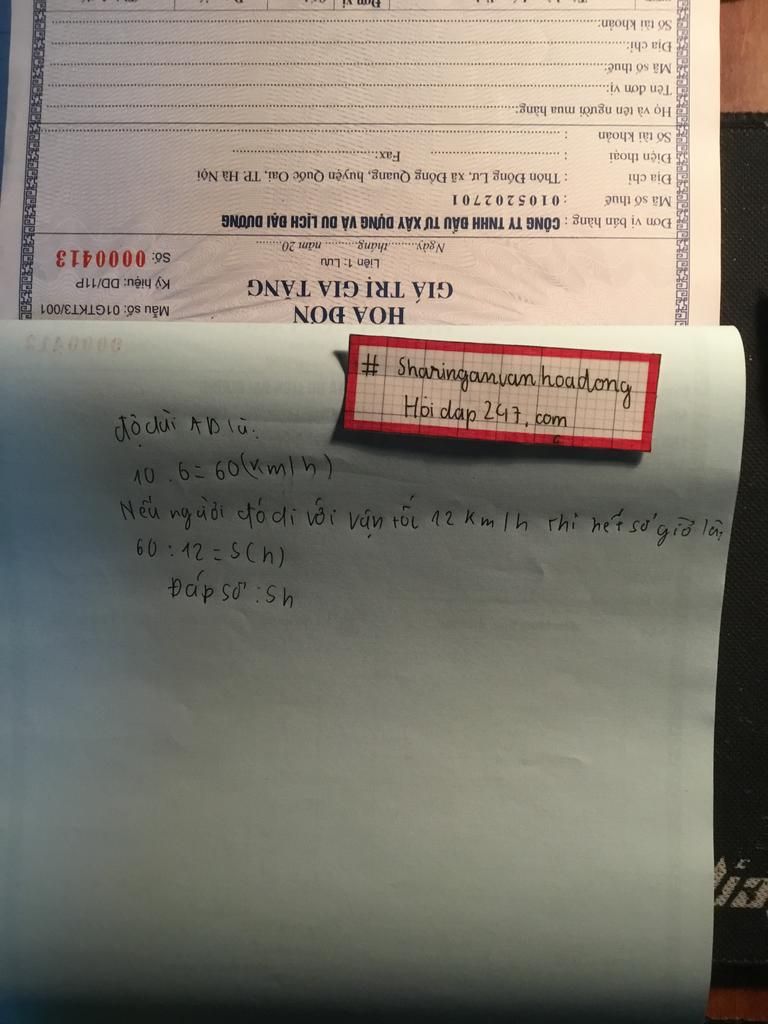 Số tài khoản:
Địa chỉ:
Mã số thuế:
Tên đơn vị:
Họ và tên người mua hàng:
Số tài khoản :
Điện thoại : Fax:
Địa chỉ : Thôn Đông Lư, xã Đông Quang, huyện Quốc Oai, TP. Hà Nội
Mã số thuế : 0105202701
Đơn vị bán hàng : CÔNG TY TNHH ĐẦU TƯ XÂY DỰNG VÀ DU LỊCH ĐẠI DƯƠNG
Ngày........ tháng........ năm 20........
Liên 1: Lưu
Số: 0000413
GIÁ TRỊ GIA TĂNG
Ký hiệu: DD/11P
HOA ĐƠN
Mẫu số: 01GTKT3/001
# Sharinganvanhoadong
Hoi dap 247. com
độ dài AB là:
10 . 6 = 60 (km/h)
Nếu người đó đi với vận tốc 12 km/h thì hết số giờ là:
60 : 12 = 5(h)
Đáp số : 5h